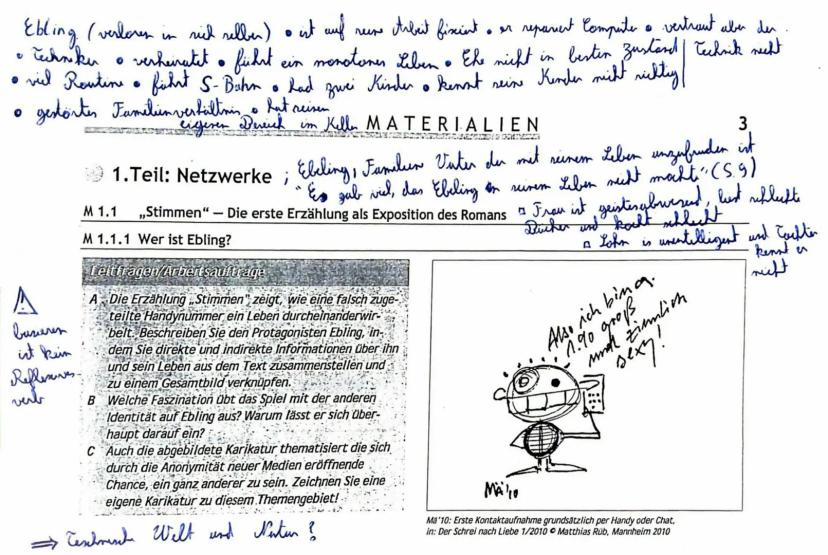 Ebling (verloren in sich selber) • ist auf seine Arbeit fixiert • er repariert Computer • vertraut aber der
• Techniker • verheiratet • führt ein monotones Leben • Ehe nicht in besten Zustand | Technik nicht
• viel Routine • fährt S-Bahn • had zwei Kinder • kennt seine Kinder nicht richtig
• gestörtes Familienverhältnis • hat seinen
eigenen Bereich im Keller
MATERIALIEN
3
1.Teil: Netzwerke ; Ebling, Familien Vater der mit seinem Leben unzufrieden ist
"Es gab viel, das Ebling an seinem Leben nicht mocht" (S.9)
M 1.1 „Stimmen" — Die erste Erzählung als Exposition des Romans
Frau ist geistesabwesend, liest schlechte
Bücher und kocht schlecht
M 1.1.1 Wer ist Ebling?
Sohn is unentelligent und Tochter
kennt er
nicht
Leitfragen/Arbeitsaufträge
A Die Erzählung „Stimmen" zeigt, wie eine falsch zuge-
teilte Handynummer ein Leben durcheinanderwir-
belt. Beschreiben Sie den Protagonisten Ebling, in-
dem Sie direkte und indirekte Informationen über ihn
und sein Leben aus dem Text zusammenstellen und
zu einem Gesamtbild verknüpfen.
B Welche Faszination übt das Spiel mit der anderen
Identität auf Ebling aus? Warum lässt er sich über-
haupt darauf ein?
C Auch die abgebildete Karikatur thematisiert die sich
durch die Anonymität neuer Medien eröffnende
Chance, ein ganz anderer zu sein. Zeichnen Sie eine
eigene Karikatur zu diesem Themengebiet!
basieren
ist kein
Reflexives-
verb
Also ich bin ca.
1.90 groß
und ziemlich
sexy!
Mä'10
Mä'10: Erste Kontaktaufnahme grundsätzlich per Handy oder Chat,
in: Der Schrei nach Liebe 1/2010 © Matthias Rüb, Mannheim 2010
⇒ Technische Welt und Natur?